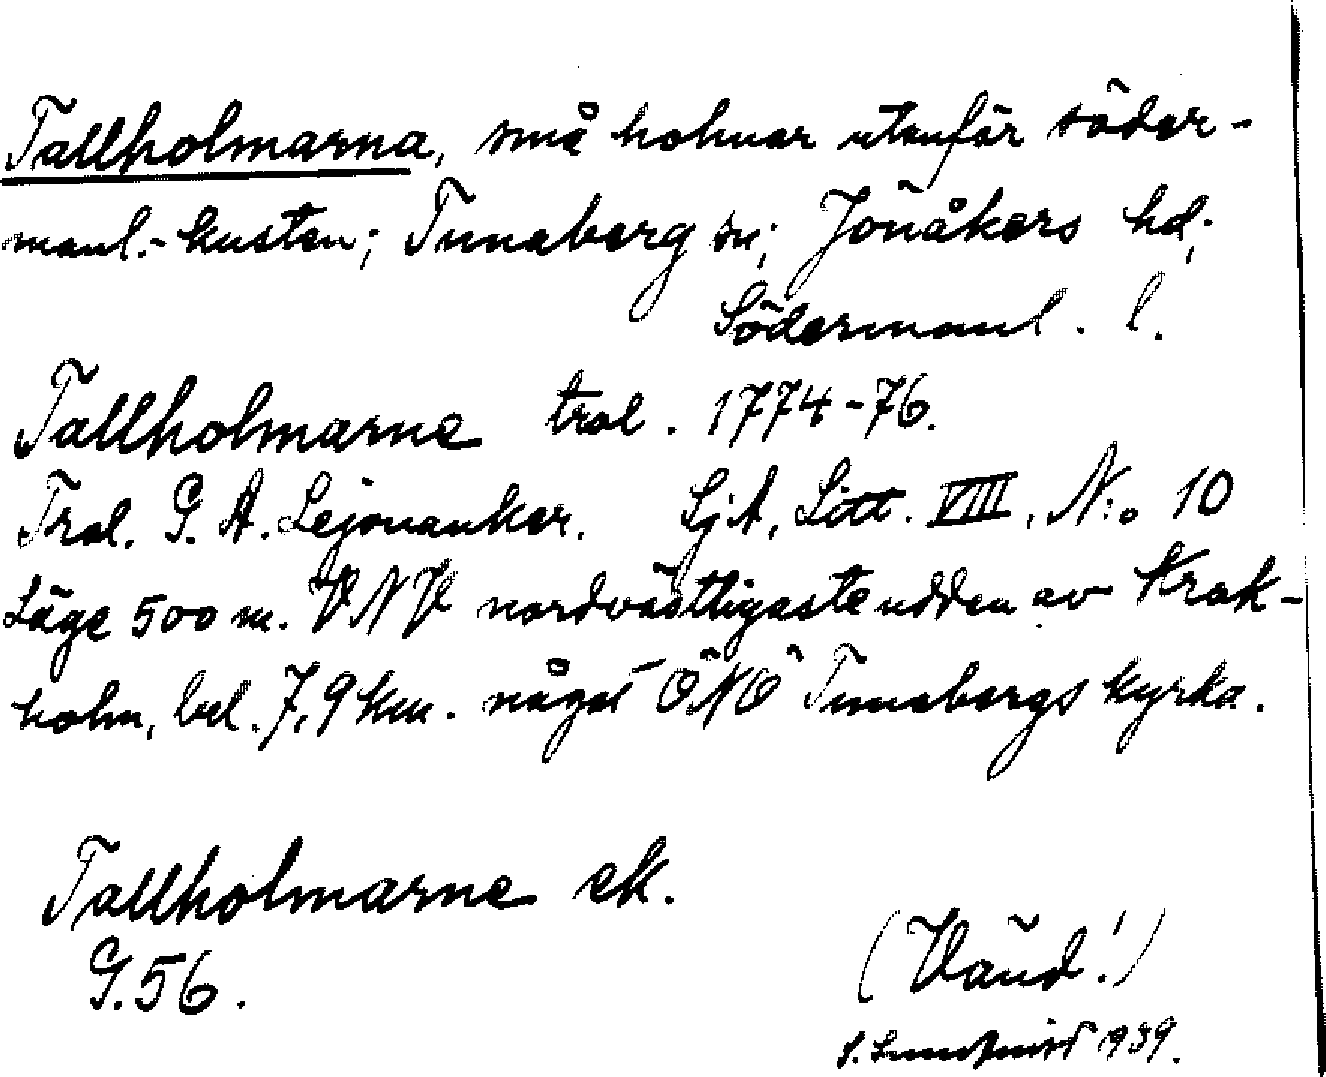 Tallholmarna, små holmar utanför söder-
manl.-kusten; Tunaberg sn; Jönåkers hd;
Södermanl. l.
Tallholmarne trol. 1774-76.
Trol. G. A. Lejonanker. SjA, Litt. VIII, N:o 10
Läge 500 m. VNV nordvästligaste udden av Krak-
holm, bel. 7,9 km. något ÖNÖ Tunabergs kyrka.
Tallholmarne ek.
G. 56.
(Vänd!)
S. 1939.